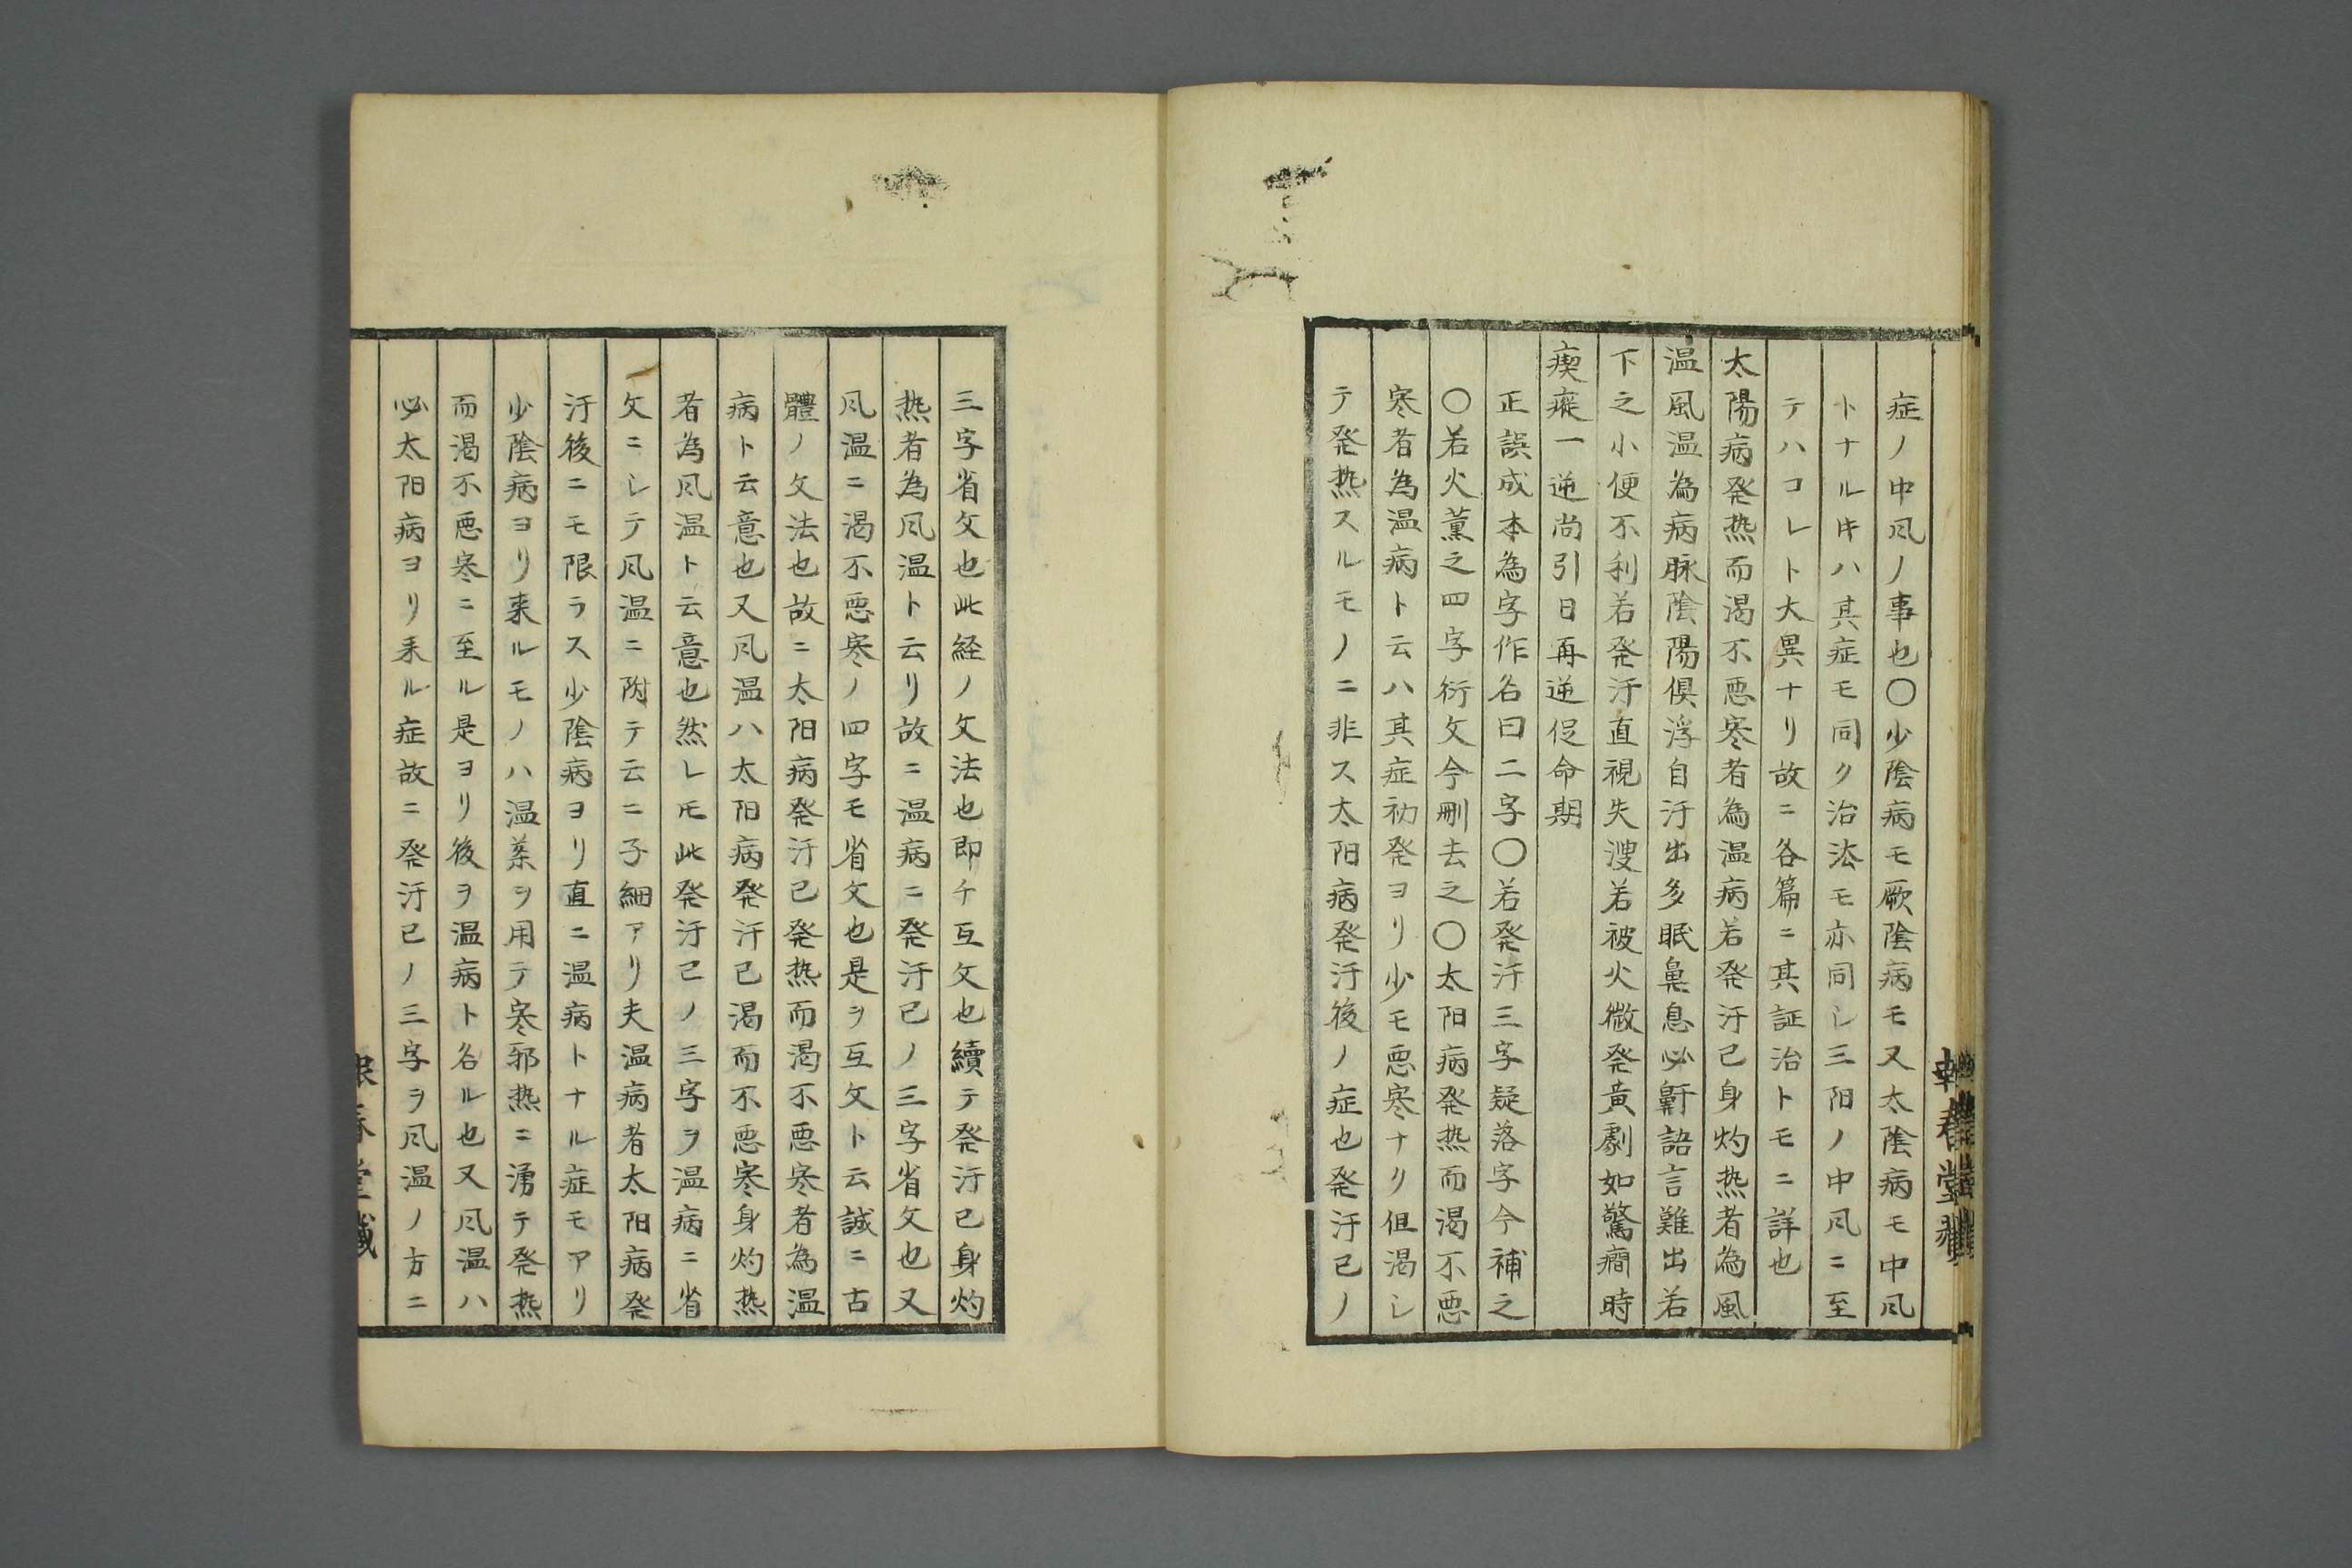 症ノ中风ノ事也〇少陰病モ厥陰病モ又太陰病モ中风
トナルキハ其症モ同ク治法モ亦同シ三阳ノ中风ニ至
テハコレト大異ナリ故ニ各篇ニ其証治トモニ詳也
太陽病発热而渴不悪寒者為温病若発汗已身灼热者為風
温風温為病脉陰陽俱浮自汗出多眠鼻息必鼾語言難出若
下之小便不利若発汗直視失溲若被火微発黃劇如驚癇時
瘈瘲一逆尚引日再逆促命期
正誤成本為字作名曰二字〇若発汗三字疑落字今補之
〇若火薫之四字衍文今刪去之〇太阳病発热而渴不悪
寒者為温病ト云ハ其症初発ヨリ少モ悪寒ナク但渴シ
テ発热スルモノニ非ス太阳病発汗後ノ症也発汗已ノ
三字省文也此経ノ文法也即チ互文也續テ発汗已身灼
热者為风温ト云リ故ニ温病ニ発汗已ノ三字省文也又
风温ニ渴不悪寒ノ四字モ省文也是ヲ互文ト云誠ニ古
體ノ文法也故ニ太阳病発汗已発热而渴不悪寒者為温
病ト云意也又风温ハ太阳病発汗已渴而不悪寒身灼热
者為风温ト云意也然レ𪜈此発汗已ノ三字ヲ温病ニ省
文ニシテ风温ニ附テ云ニ子細アリ夫温病者太阳病発
汗後ニモ限ラス少陰病ヨリ直ニ温病トナル症モアリ
少陰病ヨリ来ルモノハ温薬ヲ用テ寒邪热ニ湧テ発热
而渴不悪寒ニ至ル是ヨリ後ヲ温病ト名ル也又风温ハ
必太阳病ヨリ来ル症故ニ発汗已ノ三字ヲ风温ノ方ニ